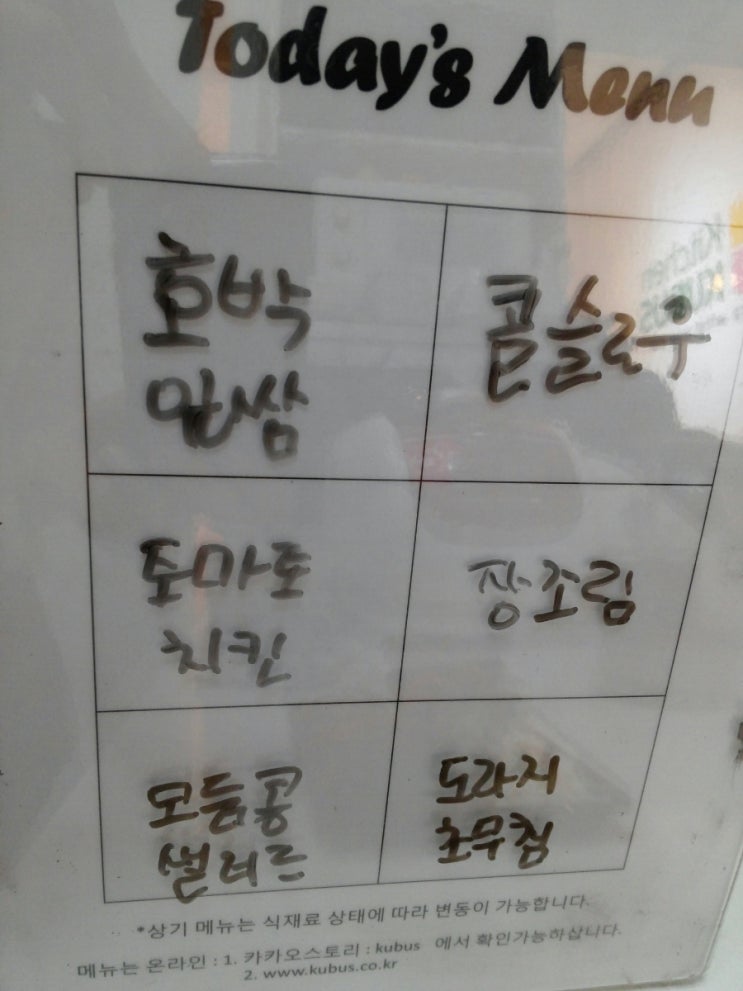 Today's Menu
호박
잎쌈
콜슬로우
토마토
치킨
장조림
모듬콩
샐러드
도라지
초무침
*상기 메뉴는 식재료 상태에 따라 변동이 가능합니다.
메뉴는 온라인 : 1. 카카오스토리 : kubus 에서 확인가능하십니다.
2. www.kubus.co.kr